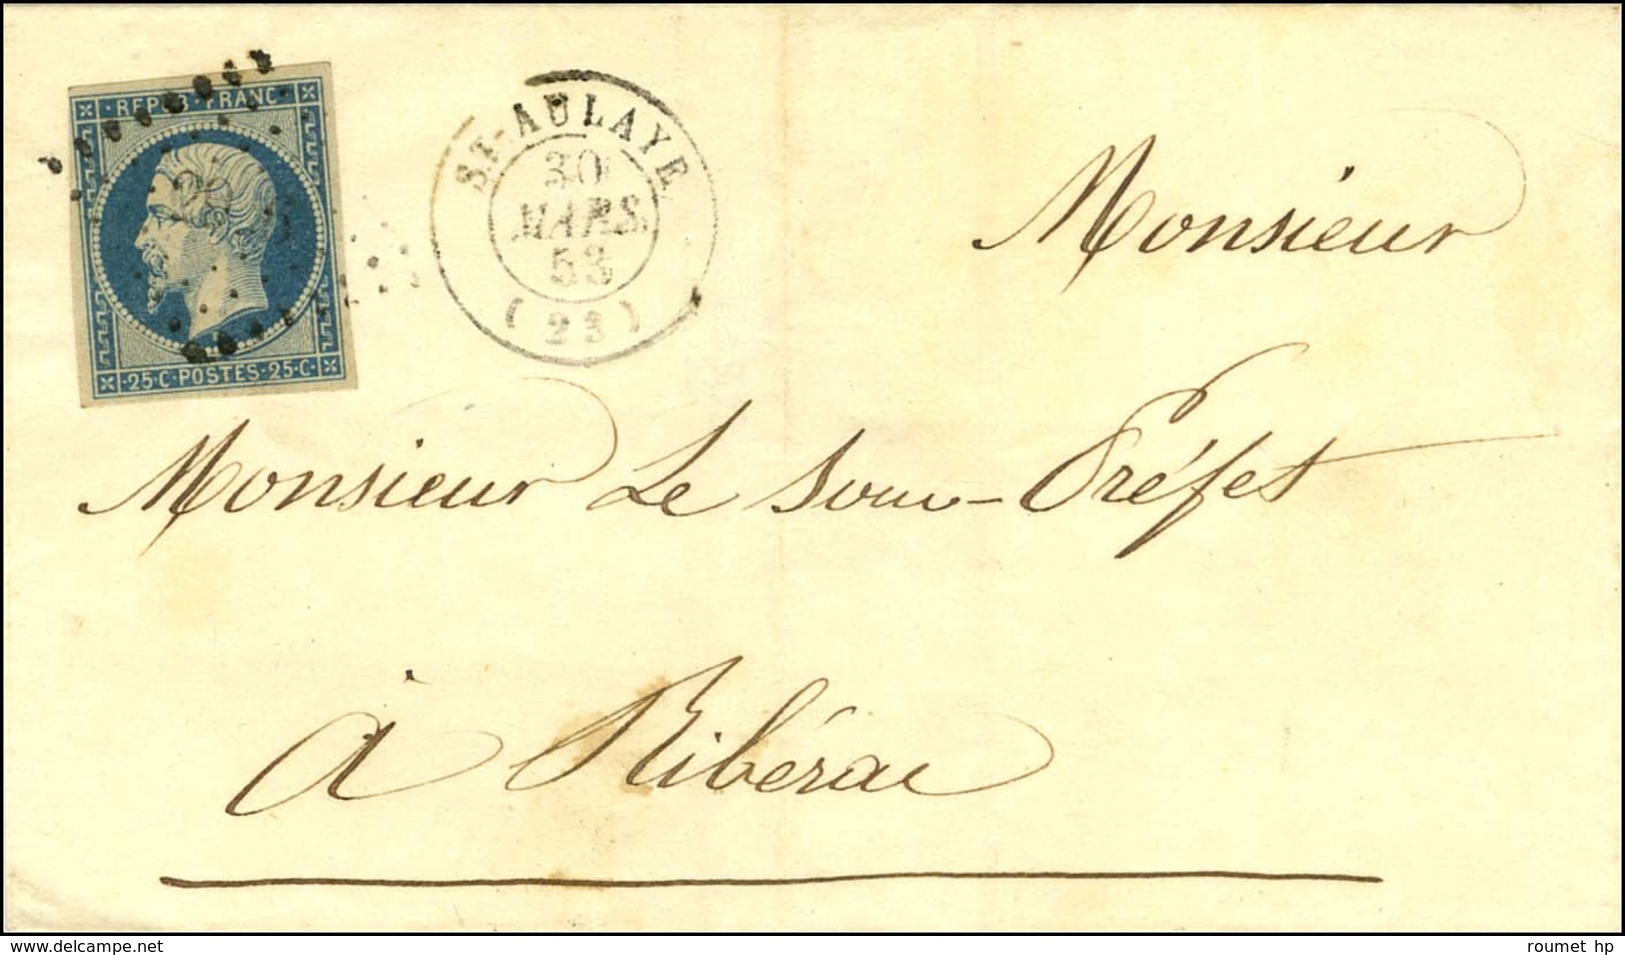 REPUB·FRANC·
·25·C·POSTES·25·C·
ST-AULAYE
30
MARS
53
(23)
Monsieur
Monsieur Le Sous-Préfet
à Ribérac
www.delcampe.net
roumet hp